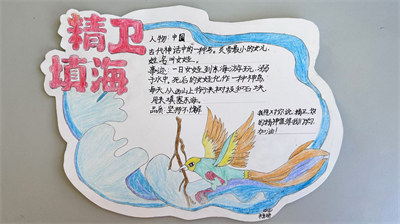 精卫
填海
人物：中国
古代神话中的一种鸟。炎帝最小的女儿
姓名叫女娃。
事迹：一日女娃到东海游玩，溺
于水中，死后的女娃化作一种神鸟
每天从西山上衔来树枝和石块
用来填塞东海。
品质：坚持不懈
我想对你说：精卫，你
的精神值得我们学习，
加油！